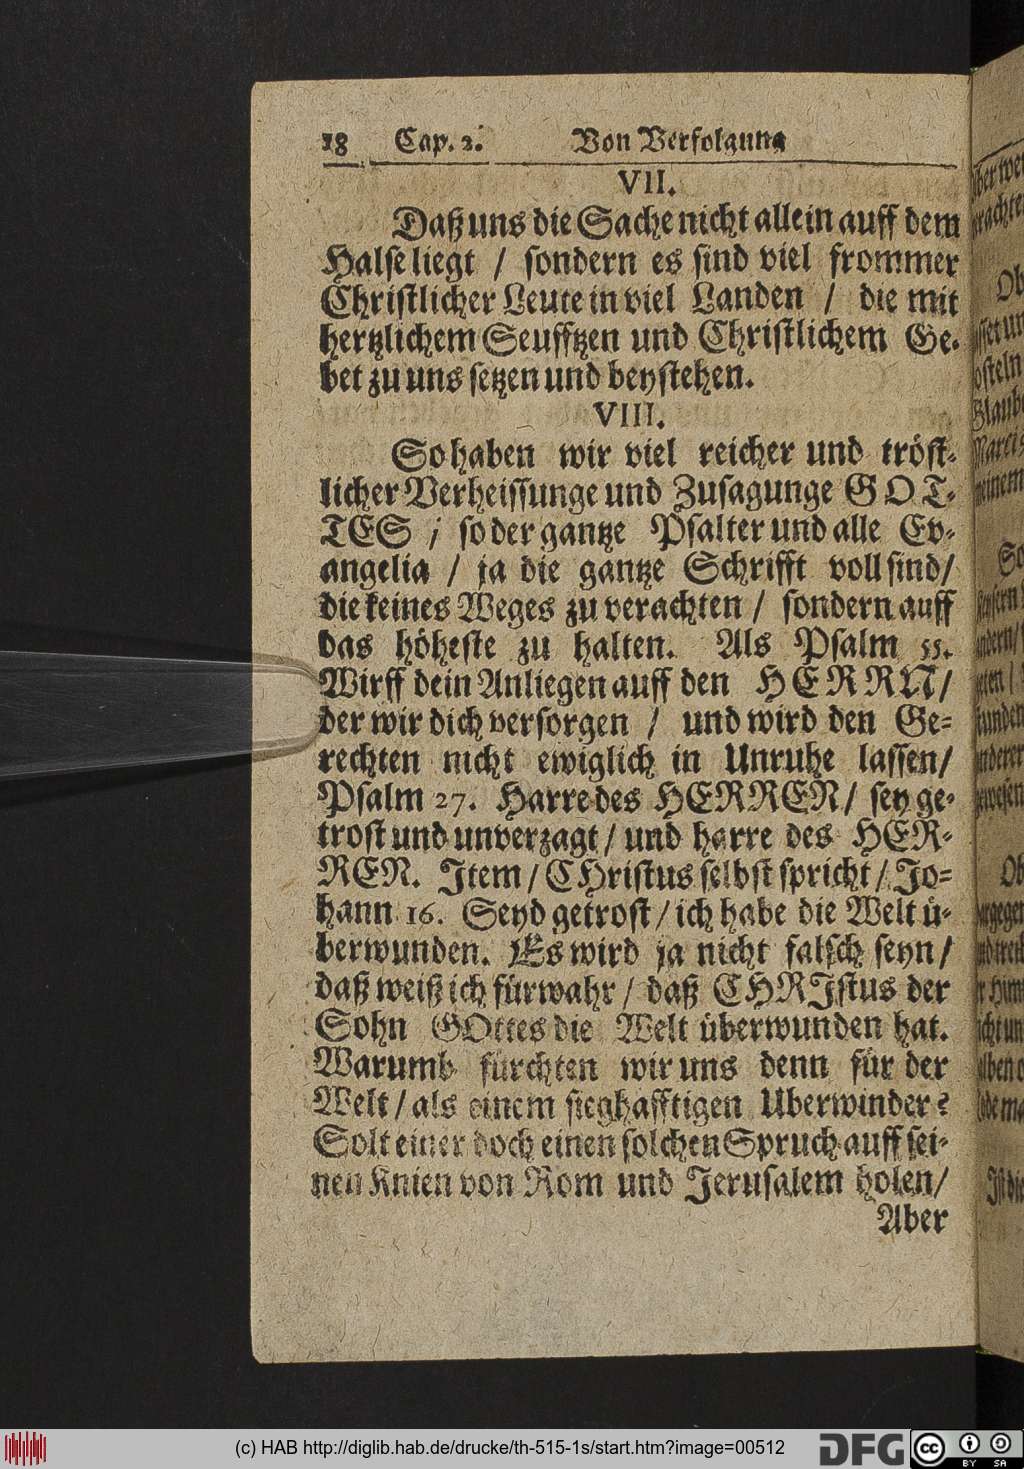 18 Cap. 2. Von Verfolgung
VII.
Daß uns die Sache nicht allein auff dem
Halse liegt / sondern es sind viel frommer
Christlicher Leute in viel Landen / die mit
hertzlichem Seufftzen und Christlichem Ge-
bet zu uns setzen und beystehen.
VIII.
So haben wir viel reicher und tröst-
licher Verheissunge und Zusagunge GOT-
TES / so der gantze Psalter und alle Ev-
angelia / ja die gantze Schrifft voll sind/
die keines Weges zu verachten / sondern auff
das höheste zu halten. Als Psalm 55.
Wirff dein Anliegen auff den HERRN/
der wir dich versorgen / und wird den Ge-
rechten nicht ewiglich in Unruhe lassen/
Psalm 27. Harre des HERREN/ sey ge-
trost und unverzagt/ und harre des HER-
REN. Item/ CHristus selbst spricht/ Jo-
hann 16. Seyd getrost/ ich habe die Welt ü-
berwunden. Es wird ja nicht falsch seyn/
daß weiß ich fürwahr/ daß CHRIstus der
Sohn GOttes die Welt überwunden hat.
Warumb fürchten wir uns denn für der
Welt/ als einem sieghafftigen Uberwinder?
Solt einer doch einen solchen Spruch auff sei-
nen Knien von Rom und Jerusalem holen/
Aber
(c) HAB http://diglib.hab.de/drucke/th-515-1s/start.htm?image=00512
DFG
cc
BY SA